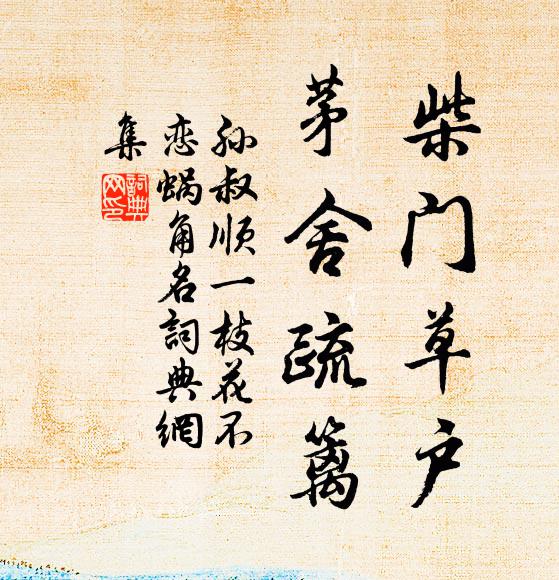 柴门草户
茅舍疏篱
孙叔顺一枝花不
恋蜗角名詞典網
集
詞典网印